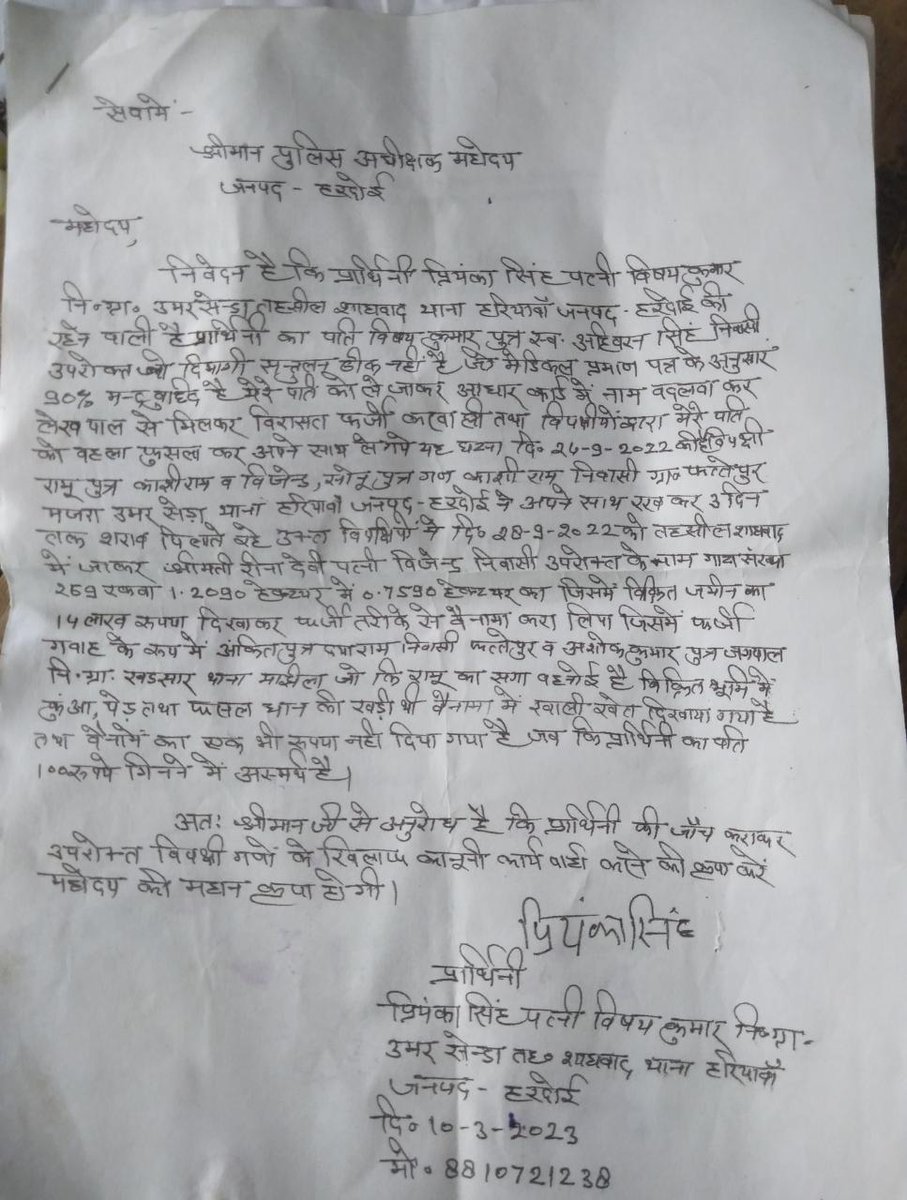 सेवामें -
श्रीमान पुलिस अधीक्षक महोदय
जनपद - हरदोई
महोदय,
निवेदन है कि प्रार्थिनी प्रियंका सिंह पत्नी विषय कुमार
नि०ग्रा० उमर सेन्डा तहसील शाहाबाद थाना हरियावाँ जनपद - हरदोई की
रहने वाली है प्रार्थिनी का पति विषय कुमार पुत्र स्व० ओहबरन सिंह निवासी
उपरोक्त जो दिमागी सन्तुलन ठीक नहीं है जो मेडिकल प्रमाण पत्र के अनुसार
90% मन्दबुध्दि है मेरे पति को ले जाकर आधार कार्ड में नाम बदलवा कर
लेखपाल से मिलकर विरासत फर्जी करवा ली तथा विपक्षीयों द्वारा मेरे पति
को वहला फुसला कर अपने साथ ले गये यह घटना दि० 24-9-2022 की है विपक्षी
रामू पुत्र काशीराम व विजेन्द्र, सोनू पुत्र गण काशी राम निवासी ग्रा० फत्तेपुर
मजरा उमर सेड़ा थाना हरियावाँ जनपद - हरदोई ने अपने साथ रख कर 3 दिन
तक शराब पिलाते रहे उक्त विपक्षियों ने दि० 28-9-2022 को तहसील शाहाबाद
में जाकर श्रीमती रीना देवी पत्नी विजेन्द्र निवासी उपरोक्त के नाम गाटा संख्या
259 रकवा 1.2090 हेक्टयर में 0.7590 हेक्टयर का जिसमें विक्रित जमीन का
14 लाख रूपया दिखाकर फर्जी तरीके से बैनामा करा लिया जिसमें फर्जी
गवाह के रूप में अंकित पुत्र दयाराम निवासी फत्तेपुर व अशोक कुमार पुत्र जगपाल
नि०ग्रा० खडसार थाना माझिला जो कि रामू का सगा वहनोई है विक्रित भूमि में
कुंआ, पेड़ तथा फसल धान की खड़ी थी बैनामा में खाली खेत दिखाया गया है
तथा बैनामें का एक भी रूपया नहीं दिया गया है जब कि प्रार्थिनी का पति
100 रूपये गिनने में अस्मर्थ है।
अतः श्रीमान जी से अनुरोध है कि प्रार्थिनी की जाँच कराकर
उपरोक्त विपक्षी गणों के खिलाफ कानूनी कार्यवाही करने की कृपा करें
महोदय की महान कृपा होगी।
प्रियंका सिंह
प्रार्थिनी
प्रियंका सिंह पत्नी विषय कुमार नि०ग्रा०
उमर सेन्डा तह० शाहाबाद थाना हरियावाँ
जनपद - हरदोई
दि० 10-3-2023
मो० 8810721238